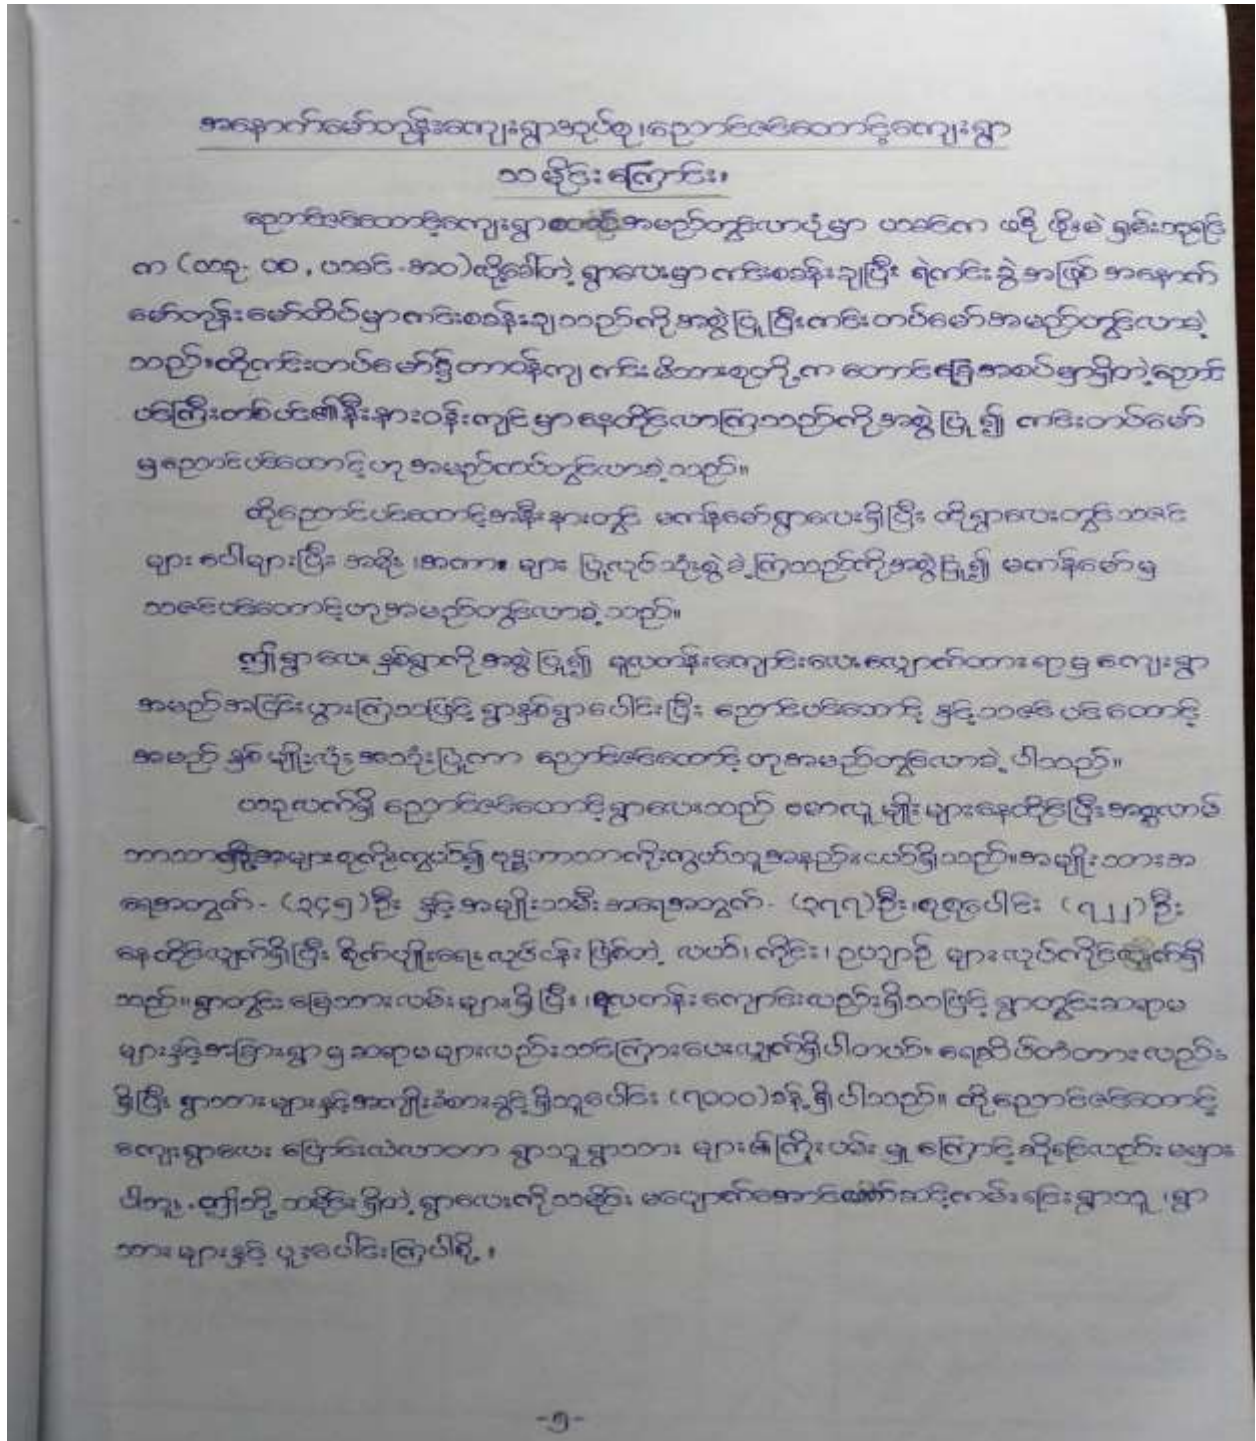 အနောက်မော်တုန်းကျေးရွာအုပ်စု၊ညောင်ဇင်ထောင့်ကျေးရွာ
သမိုင်းကြောင်း၊
ညောင်ဇင်ထောင့်ကျေးရွာ အမည်တွင်လာပုံမှာ ယခင်က ဖဒို ဖိုးမဲ ရှမ်းဘုရင်
က လို့ခေါ်တဲ့ ရွာလေးမှာ ကင်းစခန်းချပြီး ရဲကင်းခွဲ အဖြစ် အနောက်
မော်တုန်းမော်ထိပ်မှာကင်းစခန်းချသည်ကိုအစွဲပြုပြီးကင်းတပ်မော်အမည်တွင်လာခဲ့
သည်။ထိုကင်းတပ်မော်၌တာဝန်ကျ ကင်း မိသားစုတို့က တောင်ခြေအစပ်မှာရှိတဲ့ညောင်
ပင်ကြီးတစ်ပင်၏နီးနားဝန်းကျင်မှာနေထိုင်လာကြသည်ကိုအစွဲပြု၍ ကင်းတပ်မော်
မှညောင်ပင်ထောင့်ဟုအမည်ကပ်တွင်လာခဲ့သည်။
ထိုညောင်ပင်ထောင့်အနီးနားတွင် မကန်မော်ရွာလေးရှိပြီး ထိုရွာလေးတွင်သဇင်
များပေါများပြီး အမိုး၊အကာ။ များ ပြုလုပ်သုံးစွဲခဲ့ကြသည်ကိုအစွဲပြု၍ မကန်မော်မှ
သဇင်ပင်ထောင့်ဟုအမည်တွင်လာခဲ့သည်။
ဤရွာလေးနှစ်ရွာကိုအစွဲပြု၍ မူလတန်းကျောင်းလေးလျှောက်ထားရာမှ ကျေးရွာ
အမည်အငြင်းပွားကြသဖြင့် ရွာနှစ်ရွာပေါင်းပြီး ညောင်ပင်ထောင့် နှင့်သဇင်ပင်ထောင့်
အမည်နှစ်မျိုးလုံးအသုံးပြုကာ ညောင်ဇင်ထောင့်ဟုအမည်တွင်လာခဲ့ပါသည်။
ယခုလက်ရှိညောင်ဇင်ထောင့်ရွာလေးသည် ဗမာလူမျိုးများနေထိုင်ပြီးအစ္စလာမ်
ဘာသာ အများစုကိုးကွယ်၍ဗုဒ္ဓဘာသာကိုးကွယ်သူအနည်းငယ်ရှိသည်။အမျိုးသားအ
ရေအတွက်- (၃၄၅)ဦး နှင့်အမျိုးသမီးအရေအတွက်- (၃၇၇)ဦး၊စုစုပေါင်း (၇၂၂)ဦး
နေထိုင်လျက်ရှိပြီး စိုက်ပျိုးရေးလုပ်ငန်းဖြစ်တဲ့ လယ်၊ကိုင်း၊ဥယျာဉ်များလုပ်ကိုင်လျှက်ရှိ
သည်။ရွာတွင်းမြေသားလမ်းများရှိပြီး၊မူလတန်းကျောင်းလည်းရှိသဖြင့်ရွာတွင်းဆရာမ
များနှင့်အခြားရွာမှဆရာမများလည်းသင်ကြားပေးလျှက်ရှိပါတယ်။ရေဆိပ်တံတားလည်း
ရှိပြီး ရွာသားများနှင့်အကျိုးခံစားခွင့်ရှိသူပေါင်း(၇၀၀၀)ခန့်ရှိပါသည်။ ထိုညောင်ဇင်ထောင့်
ကျေးရွာလေး ပြောင်းလဲလာတာ ရွာသူရွာသား များ၏ကြိုးပမ်းမှုကြောင့်ဆိုရင်လည်းမမှား
ပါဘူး။ဤသို့ သမိုင်းရှိတဲ့ရွာလေးကိုသမိုင်း မပျောက်အောင် ဆင့်ကမ်းရင်းရွာသူ၊ရွာ
သားများနှင့် ပူးပေါင်းကြပါစို့၊
-၅-